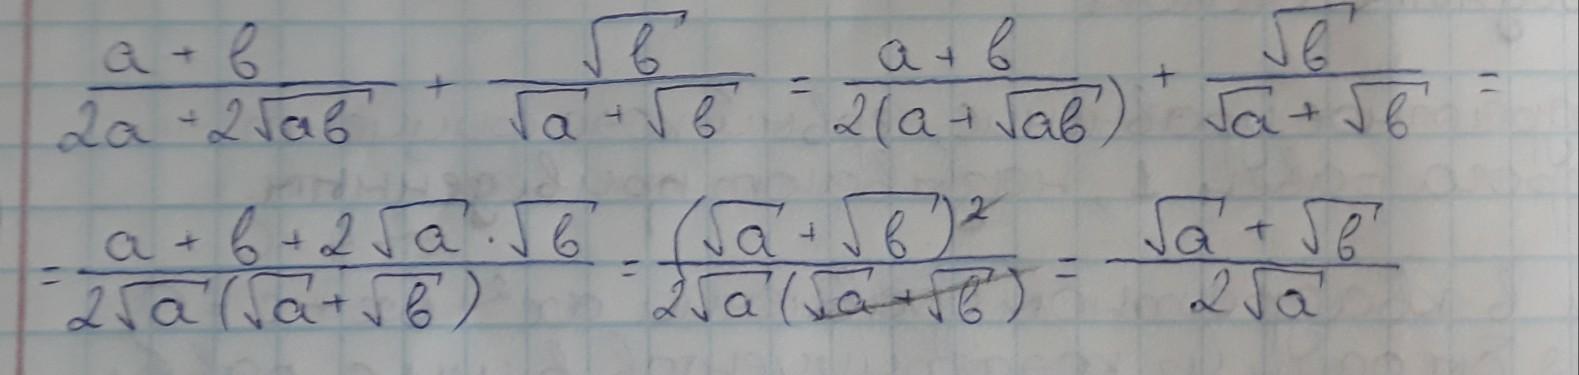 (a + b)/(2a + 2√(ab)) + √b/(√a + √b) = (a + b)/(2(a + √(ab))) + √b/(√a + √b) =
= (a + b + 2√a · √b)/(2√a(√a + √b)) = (√a + √b)²/(2√a(√a + √b)) = (√a + √b)/(2√a)